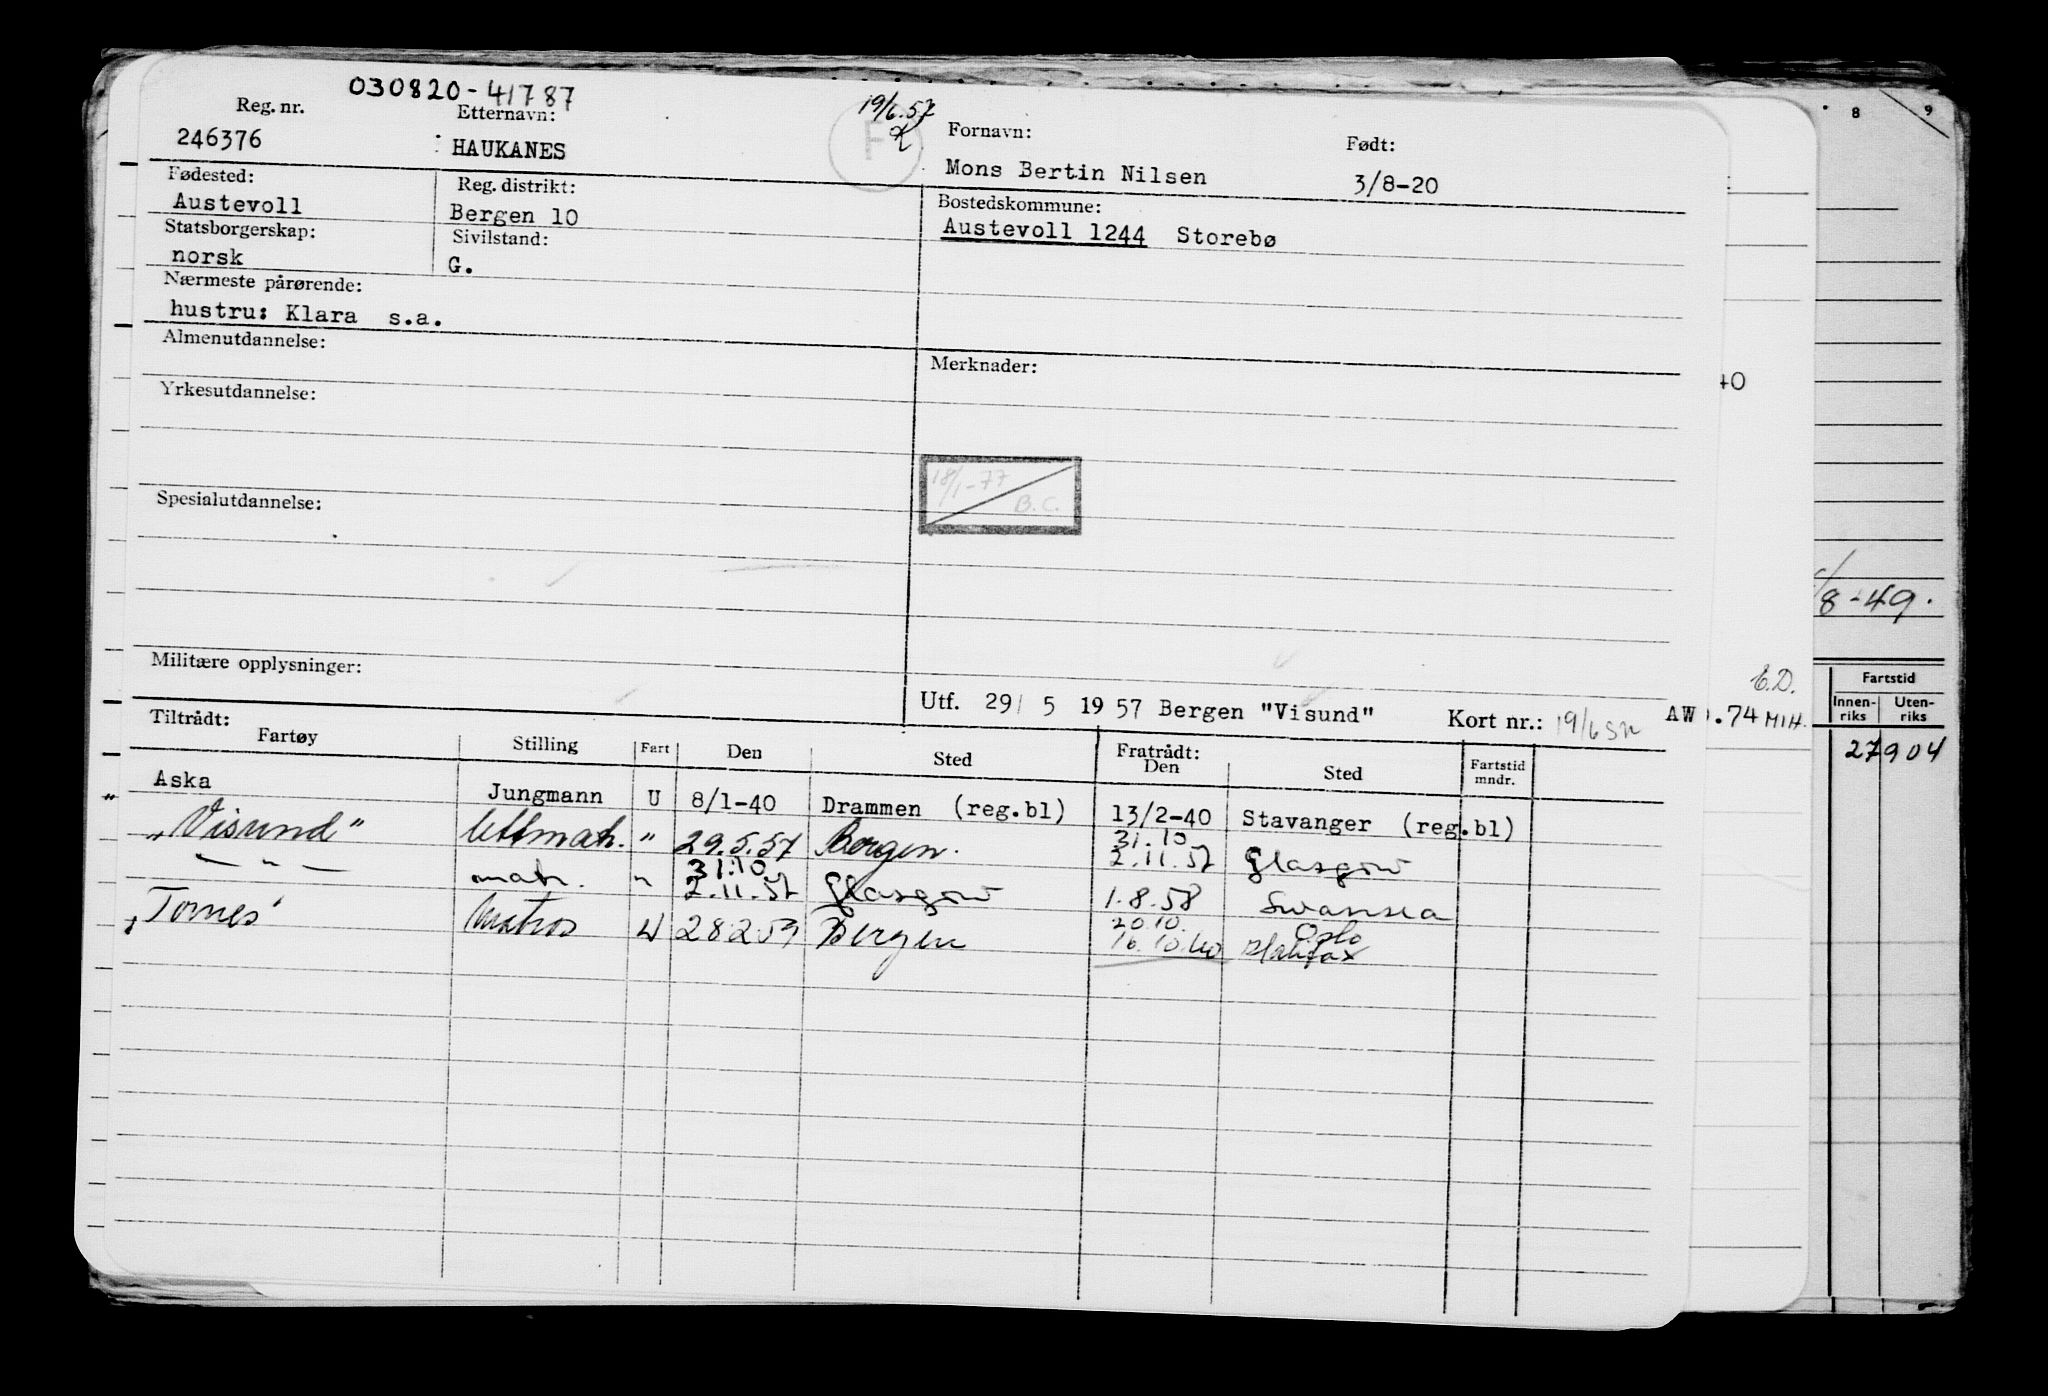 030820-41787
Reg. nr. Etternavn: 19/6.57 Fornavn: Født:
246376 HAUKANES F Mons Bertin Nilsen 3/8-20
Fødested: Reg. distrikt: Bostedskommune:
Austevoll Bergen 10 Austevoll 1244 Storebø
Statsborgerskap: Sivilstand:
norsk G.
Nærmeste pårørende:
hustru: Klara s.a.
Almenutdannelse: Merknader:
Yrkesutdannelse:
18/1-77
B.C.
Spesialutdannelse:
Militære opplysninger:
Utf. 29/ 5 1957 Bergen "Visund" Kort nr.: 19/6 AW
Tiltrådt: Fratrådt:
Fartøy Stilling Fart Den Sted Den Sted Fartstid mndr.
Aska Jungmann U 8/1-40 Drammen (reg.bl) 13/2-40 Stavanger (reg.bl)
"Visund" lettmatr. " 29.5.57 Bergen. 31.10 2.11.57 Glasgow
— " — matr. " 31.10 2.11.57 Glasgow 1.8.58 Swansea
"Tornes" Matros U 28259 Bergen 20.10. 16.10.60 Oslo Halifax
8 9
40
/8-49.
E.D.
.74 MIH.
Fartstid
Innen-riks Uten-riks
27 904